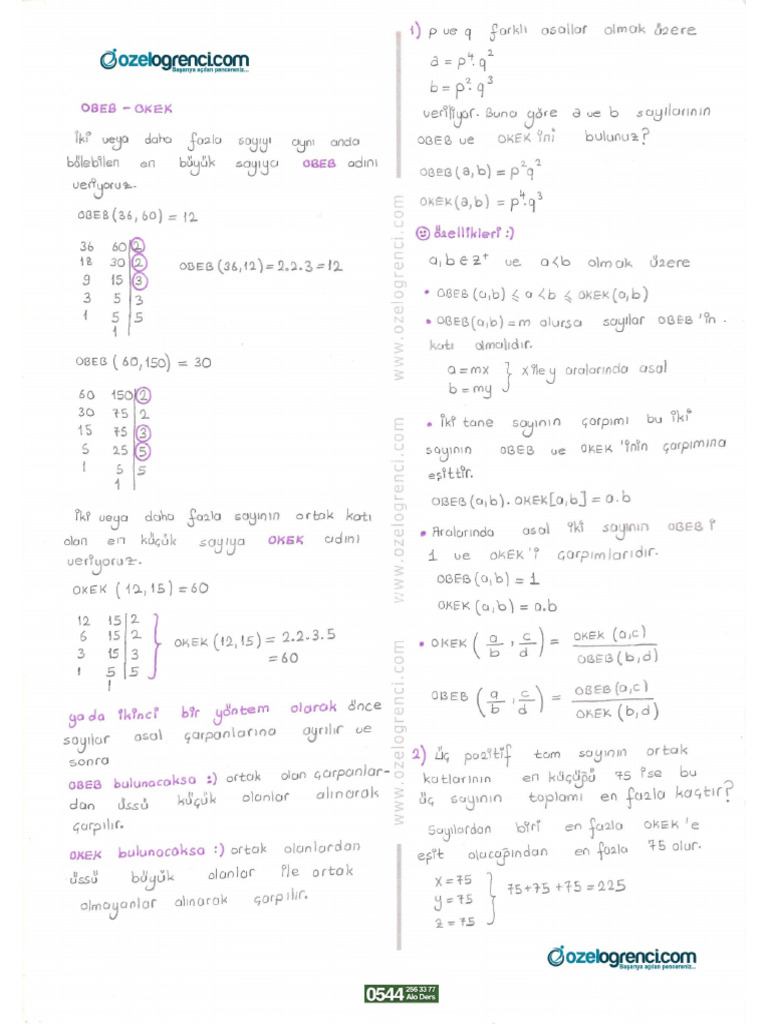 özelogrenci.com
Başarıya açılan pencereniz...
OBEB - OKEK
iki veya daha fazla sayıyı aynı anda
bölebilen en büyük sayıya OBEB adını
veriyoruz.
OBEB(36,60) = 12
36 60 2
18 30 2
9 15 3
3 5 3
1 5 5
1
OBEB(36,12) = 2.2.3 = 12
OBEB(60,150) = 30
60 150 2
30 75 2
15 75 3
5 25 5
1 5 5
1
iki veya daha fazla sayının ortak katı
olan en küçük sayıya OKEK adını
veriyoruz.
OKEK (12,15) = 60
12 15 2
6 15 2
3 15 3
1 5 5
1
OKEK (12,15) = 2.2.3.5
= 60
ya da ikinci bir yöntem olarak önce
sayılar asal çarpanlarına ayrılır ve
sonra
OBEB bulunacaksa :) ortak olan çarpanlar-
dan üssü küçük olanlar alınarak
çarpılır.
OKEK bulunacaksa :) ortak olanlardan
üssü büyük olanlar ile ortak
olmayanlar alınarak çarpılır.
1) p ve q farklı asallar olmak üzere
a = p⁴.q²
b = p².q³
veriliyor. Buna göre a ve b sayılarının
OBEB ve OKEK'ini bulunuz?
OBEB(a,b) = p²q²
OKEK(a,b) = p⁴.q³
özellikleri :)
a,b ∈ z⁺ ve a<b olmak üzere
• OBEB(a,b) ⩽ a < b ⩽ OKEK(a,b)
• OBEB(a,b)=m olursa sayılar OBEB'in
katı olmalıdır.
a = mx
b = my } x ile y aralarında asal
• iki tane sayının çarpımı bu iki
sayının OBEB ve OKEK'inin çarpımına
eşittir.
OBEB(a,b). OKEK[a,b] = a.b
• Aralarında asal iki sayının OBEB i
1 ve OKEK'i çarpımlarıdır.
OBEB(a,b) = 1
OKEK(a,b) = a.b
• OKEK (a/b , c/d) = OKEK (a,c) / OBEB(b,d)
OBEB (a/b , c/d) = OBEB(a,c) / OKEK (b,d)
2) üç pozitif tam sayının ortak
katlarının en küçüğü 75 ise bu
üç sayının toplamı en fazla kaçtır?
Sayılardan biri en fazla OKEK'e
eşit olacağından en fazla 75 olur.
x = 75
y = 75
z = 75
75+75+75 = 225
www.ozelogrenci.com
www.ozelogrenci.com
www.ozelogrenci.com
özelogrenci.com
Başarıya açılan pencereniz...
0544 256 33 77
Alo Ders